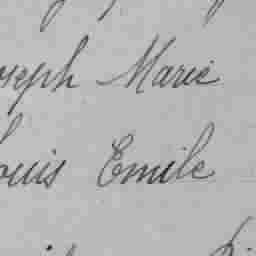 oseph Marie
ouis Emile